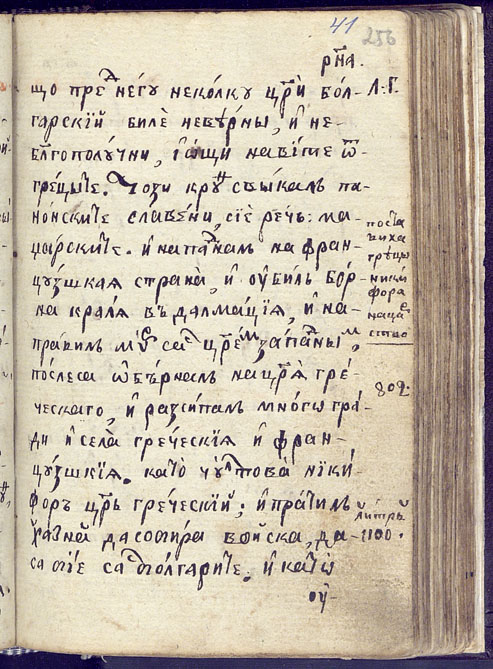 41
256
рн҃а.
що пред него неколку цр҃и бол-
л. г.
гарскїй билѐ неверны, и не-
бл҃гополучни, їащи навѝте ѿ
грецыте. този крꙋ свыкалъ па-
нонските славе́ни, сїе речь: ма-
џарските. и нападналъ на фран-
цꙋшкая страна, и ꙋбилъ бор-
на краля въ далмацїя, и на-
правилъ миръ са цр҃емъ западнымъ,
послеса ѡбѣрналъ на цр҃я гре-
ческаго, и разсипалъ многѡ гра-
ди и села греческїя и фран-
цꙋшкїя. като чꙋ това ники-
форъ цр҃ь греческїй; и пратилъ
хазна да собира войска, да-
са бїе са болгарите. и катѡ
оу-
поста
виха
грецы
ники
фора
на ца
ство
802.
литры
1100.